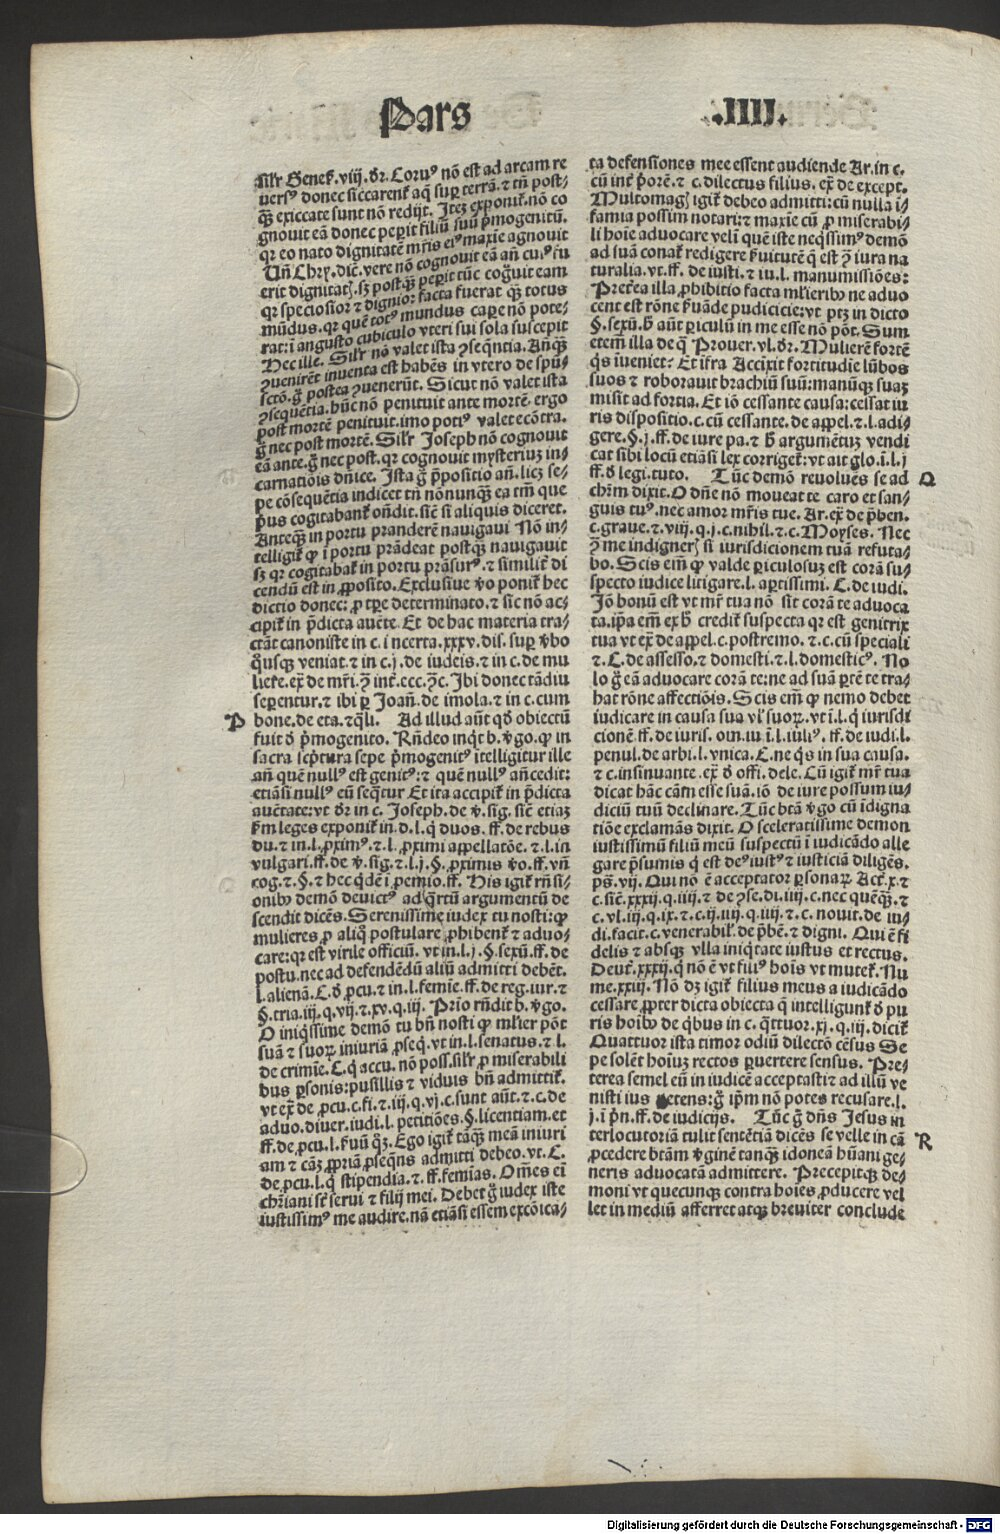 Pars .IIII.
silr Genes̄.viij.dr̄. Coruꝰ nō est ad arcam re
uersꝰ donec siccarent̄ aq̄ suꝑ terrā.⁊ tn̄ post⸗
q̄ꝫ exiccate sunt nō redijt. Itez exponit̄.nō co
gnouit eā donec peperit filiū suū p̄mogenitū.
qr eo nato dignitatē mr̄is eiꝰ maxie agnouit
Un̄ Chrẏ.dic̄.vere nō cognouit eā an̄ cuiꝰ fu
erit dignitatꝭ.sꝫ postq̄ꝫ peperit tūc cog̊uit eam
qr speciosior ⁊ dignior facta fuerat q̄ꝫ totus
mūdus.qr quē totꝰ mundus capere nō pote⸗
rat:ī angusto cubiculo vteri sui sola suscepit
Hec ille. Silr̄ nō valet ista ꝯseq̄ntia. Anq̄ꝫ
ꝯuenirēt inuenta est habēs in vtero de spū⸗
sctō.g̊ postea ꝯuenerūt. Sicut nō valet ista
ꝯsequētia.hūc nō penituit ante mortē.ergo
post mortē penituit.imo potiꝰ valet ecōtra.
g̊ nec post mortē. Silr̄ Joseph nō cognouit
eā ante.g̊ nec post.qr cognouit mysteriuꝫ in⸗
carnatiōis dn̄ice. Ista g̊ p̄positio an̄.licꝫ se⸗
pe cōsequētia indicet tn̄ nōnunq̄ꝫ ea tm̄ que
pri̇us cogitabant̄ on̄dit.sic̄ si aliquis diceret.
Anteq̄ꝫ in portu pranderē nauigaui Nō in⸗
telligit̄ ꝙ ī portu prādeat postq̄ꝫ nauigauit
sꝫ qr cogitabat̄ in portu prāsurꝰ.⁊ similit̄ di
cendū est in ꝓposito. Exclusiue v̊o ponit̄ hec
dictio donec: ꝓ tp̄re determinato.⁊ sic nō ac⸗
cipit̄ in p̄dicta aucte. Et de hac materia tra⸗
ctāt canoniste in c.i ncerta.xxxv.dis. suꝑ v̊bo
q̊usqꝫ veniat.⁊ in c.j.de iudeis.⁊ in c.de mu
liere.ex̄ de mr̄i.⁊ int̄.ccc.⁊c. Ibi donec tādiu
seꝑentur.⁊ ibi ꝑ Joan̄.de imola.⁊ in c.cum
P bone.de eta.⁊q̄li. Ad illud aūt qd̊ obiectū
fuit d̊ p̄mogenito. Rn̄deo inq̄t b.v̊go.ꝙ in
sacra scp̄tura sepe p̄mogenitꝰ ītelligitur ille
an̄ quē nullꝰ est genitꝰ:⁊ quē nullꝰ an̄cedit:
etiāsi nullꝰ eū seq̄tur Et ita accipit̄ in p̄dicta
auctate:vt dr̄ in c. Joseph.de v̊.sig. sic̄ etiaꝫ
s̄m leges exponit̄ in.d.l.q̊ duos. ff.de rebus
du.⁊ in.l.ꝓximꝰ.⁊.l.ꝓximi appellatōe.⁊.l.in
vulgari.ff.de v̊.sig.⁊.l.j.§.ꝓximis v̊o.ff.vn̄
cog.⁊.§.⁊ hec q̊de ī ꝓemio.ff. His igit̄ rn̄si⸗
onibꝰ demō deuictꝰ ad q̊rtū argumentū de
scendit dicēs. Serenissime iudex tu nosti:ꝙ
mulieres ꝓ aliq̊ postulare ꝓhibent̄ ⁊ aduo⸗
care:qr est virile officiū. vt in.l.j.§.sexū.ff.de
postu.nec ad defendēdū aliū admitti debēt.
l.alienā.C.d̊ ꝓcu.⁊ in.l.femie.ff.de reg.iur.⁊
§.tria.iij.q.vij.⁊.xv.q.iij. Prio rn̄dit b.v̊go.
O iniq̊ssime demō tu bn̄ nosti ꝙ ml̄ier pōt
suā ⁊ suoꝝ iniuriā ꝓseq̊.vt in.l.senatus.⁊ l.
de crimīe.C.q̊ accu.nō poss.silr̄ ꝓ miserabili
bus ꝑsonis:pusillis ⁊ viduis bn̄ admittit̄.
vt ex̄ de ꝓcu.c.fi.⁊ iij.q.vj.c.sunt aūt.⁊ c.de
aduo.diuer.iudi.l.petitiōes.§.licentiam.et
ff.de ꝓcu.l.s̊uū q̊ꝫ. Ego igit̄ tāq̄ꝫ meā iniuri
am ⁊ cāꝫ ꝓpriā ꝓseq̄ns admitti debeo.vt.C.
de ꝓcu.l.q̊ stipendia.⁊.ff.femias. Om̄es ei
chr̄iani st̄ serui ⁊ filij mei. Debet g̊ iudex iste
iustissimꝰ me audire.nā etiāsi essem excōica⸗
ta defensiones mee essent audiende Ar.in c.
cū int̄ p̊orē.⁊ c.dilectus filius. ex̄ de except.
Multomagꝭ igit̄ debeo admitti:cū nulla i⸗
famia possim notari:⁊ maxie cū ꝓ miserabi⸗
li hoie aduocare veli quē iste neq̊ssimꝰ demō
ad suā conat̄ redigere s̊uitutē q̊ est ꝯ iura na
turalia.vt.ff.de iusti.⁊ iu.l. manumissiōes:
Preterea illa ꝓhibitio facta ml̄ieribꝰ ne aduo
cent est rōne s̊uāde pudicicie:vt ptꝫ in dicto
§.sexū.h̊ aūt ꝑiculū in me esse nō pōt. Sum
etem̄ illa de q̊ Prouer.vl.dr̄. Mulierē fortē
q̊s iueniet: Et ifra Accinxit fortitudie lūbos
suos ⁊ roborauit brachiū suū:manūqꝫ suaꝫ
misit ad fortia. Et iō cessante causa:cessat iu
ris dispositio.c.cū cessante.de appel.⁊.l.adi⸗
gere.§.j.ff.de iure pa.⁊ h̊ argumētuꝫ vendi
cat sibi locū etiāsi lex corriget̄:vt ait glo.i.l.j
ff.d̊ legi.tuto. Tūc demō reuoluēs se ad Q
chr̄m dixit. O dn̄e nō moueat te caro et san⸗
guis tuꝰ.nec amor mr̄is tue. Ar.ex̄ de p̄ben.
c.graue.⁊.viij.q.j.c.nihil.⁊.c. Moyses. Nec
ꝯ me indignerꝭ si iurisdicionem tuā refuta⸗
bo. Scis em̄ ꝙ valde ꝑiculosuꝫ est corā su⸗
specto iudice litigare.l.aꝑtissimi. C.de iudi.
Jō bonū est vt mr̄ tua nō sit corā te aduoca
ta.ip̄a em̄ ex h̊ credit̄ suspecta qr est genitrix
tua vt ex̄ de appel.c.postremo.⁊.c.cū speciali
⁊.C.de assesso.⁊ domesti.⁊.l.domesticꝰ. No
lo g̊ eā aduocare corā te:ne ad suā ꝑtē te tra⸗
hat rōne affectiōis. Scis em̄ ꝙ nemo debet
iudicare in causa sua vl̄ suoꝝ.vt ī.l.q̊ iurisdi
cionē.ff.de iuris. om.iu ī.l.iuliꝰ. ff.de iudi.l.
penul.de arbi.l.vnica.C.ne q̊s in sua causa.
⁊ c.insinuante.ex̄ d̊ offi.dele. Cū igit̄ mr̄ tua
dicat hāc cām esse suā.iō de iure possum iu⸗
diciū tuū declinare. Tūc btā v̊go cū idigna
tiōe exclamās dixit. O sceleratissime demon
iustissimū filiū meū suspectū ī iudicādo alle
gare p̄sumis q̊ est deꝰ iustꝰ ⁊ iusticiā diligēs.
ps̄.vij. Qui nō ē acceptator ꝑsonaꝝ Act̄.x ⁊
c.sic̄.xxxij.q.iiij.⁊ de ꝯse.di.iiij.c.nec quēq̄ꝫ.⁊
c.vl.iij.q.ix.⁊ c.ij.iiij.q.iiij.⁊ c.nouit.de iu⸗
di.facit.c.venerabil̄.de p̄bē.⁊ digni. Qui ē fi
delis ⁊ absqꝫ vlla iniq̊tate iustus et rectus.
Deut̄.xxxij.q̊ nō ē vt filiꝰ hois vt mutet̄. Nu
me.xxiij. Nō dꝫ igit̄ filius meus a iudicādo
cessare ꝓpter dicta obiecta q̊ intelligunt̄ d̊ pu
ris hoibꝰ de q̊bus in c.q̊ttuor.xj.q.iij.dicit̄
Quattuor ista timor odiū dilectō cēsus Se
pe solēt hoiuꝫ rectos ꝑuertere sensus. Pre⸗
terea semel eū in iudicē acceptasti:⁊ ad illū ve
nisti ius petens:g̊ ip̄m nō potes recusare.l.
j.i p̄n.ff.de iudicijs. Tūc g̊ dn̄s Jesus in
terlocutoriā tulit sentētiā dicēs se velle in cā R
ꝓcedere btām v̊ginē tanq̄ꝫ idoneā hūani ge⸗
neris aduocatā admittere. Precepitqꝫ de⸗
moni vt quecunqꝫ contra hoies ꝓducere vel
let in mediū afferret atqꝫ breuiter conclude
Digitalisierung gefördert durch die Deutsche Forschungsgemeinschaft - DFG